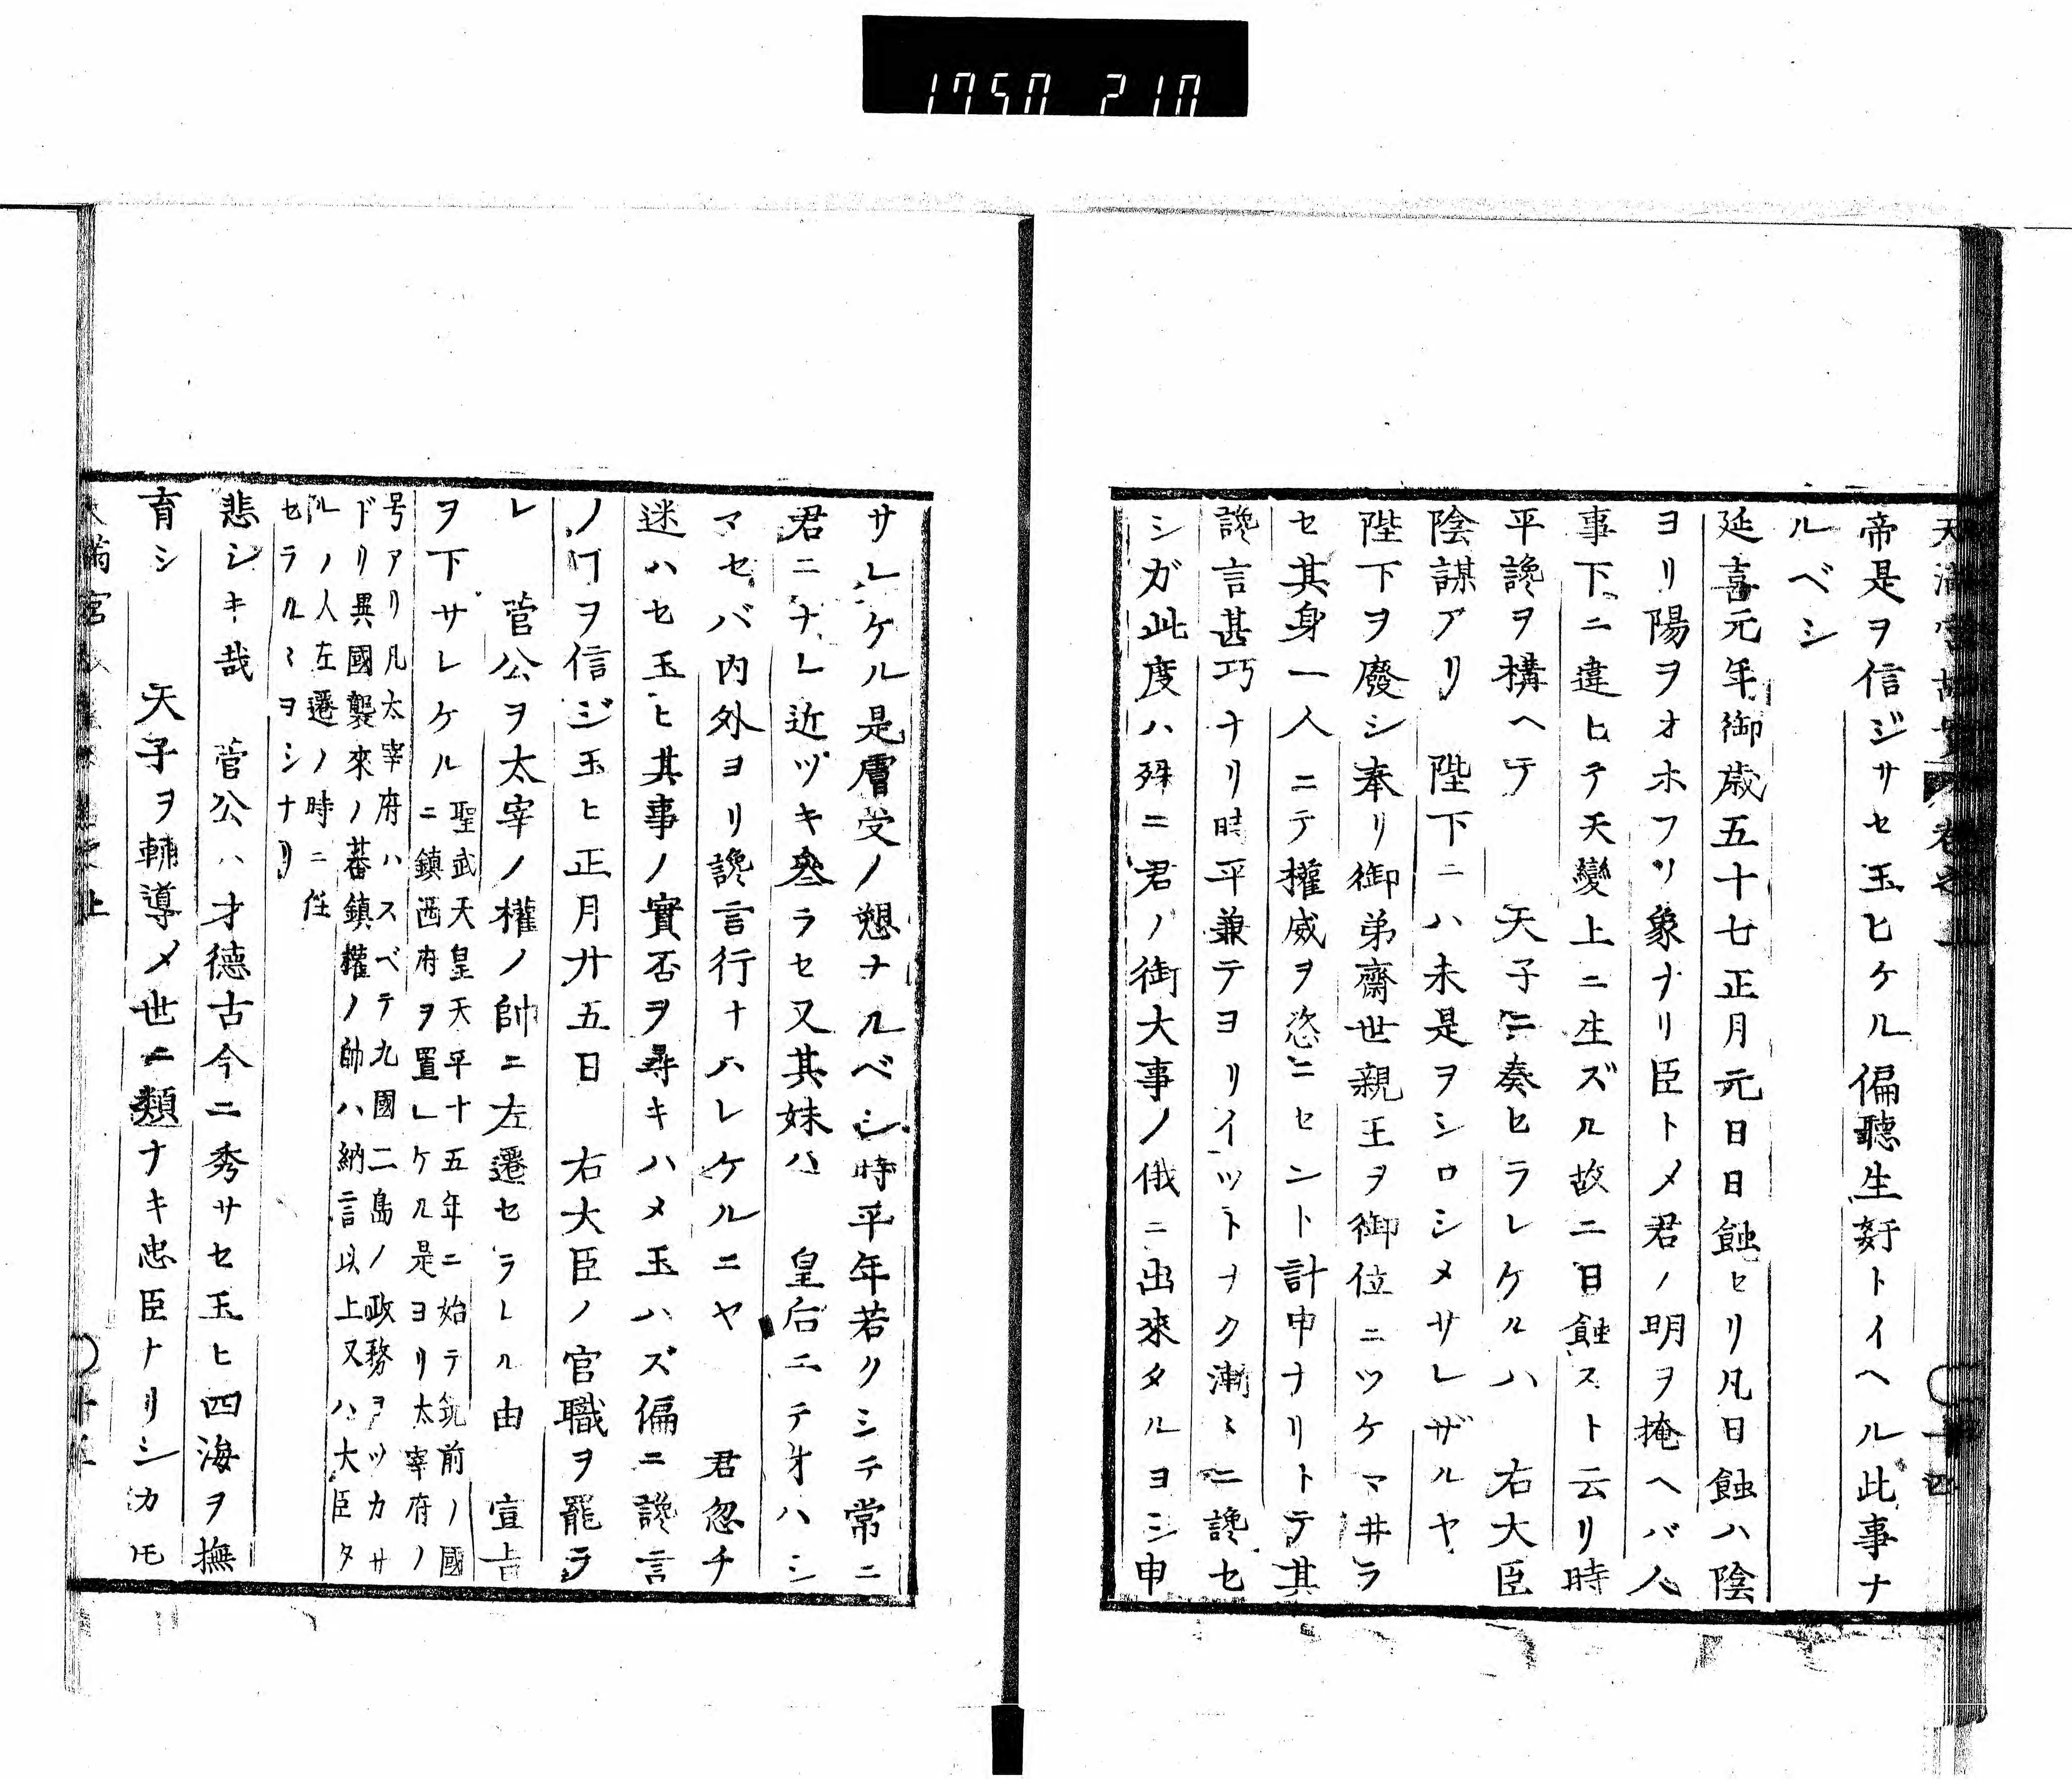 1750 210
帝是ヲ信ジサセ玉ヒケル偏聽生姧トイヘル此事ナ
ルベシ
延喜元年御歳五十七正月元日日蝕セリ凡日蝕ハ陰
ヨリ陽ヲオホフノ象ナリ臣トメ君ノ明ヲ掩ヘバ人
事下ニ違ヒテ天變上ニ生ズル故ニ日蝕スト云リ時
平讒ヲ構ヘテ 天子ニ奏セラレケルハ 右大臣
陰謀アリ 陛下ニハ未是ヲシロシメサレザルヤ
陛下ヲ廢シ奉リ御弟齋世親王ヲ御位ニツケマ井ラ
セ其身一人ニテ權威ヲ恣ニセント計申ナリトテ其
讒言甚巧ナリ時平兼テヨリイツトナク漸〻ニ讒セ
シガ此度ハ殊ニ君ノ御大事ノ俄ニ出來タルヨシ申
サレケル是膚受ノ愬ナルベシ時平年若クシテ常ニ
君ニナレ近ヅキ叅ラセ又其妹ハ 皇后ニテオハシ
マセバ内外ヨリ讒言行ナハレケルニヤ 君忽チ
迷ハセ玉ヒ其事ノ實否ヲ尋キハメ玉ハズ偏ニ讒言
ノヿヲ信ジ玉ヒ正月廿五日 右大臣ノ官職ヲ罷ラ
レ 菅公ヲ太宰ノ權ノ帥ニ左遷セラレル由 宣旨
ヲ下サレケル
聖武天皇天平十五年ニ始テ筑前ノ國
ニ鎮西府ヲ置レケル是ヨリ太宰府ノ
号アリ凡太宰府ハスベテ九國二島ノ政務ヲツカサ
ドリ異國襲來ノ蕃鎮權ノ帥ハ納言以上又ハ大臣タ
ルノ人左遷ノ時ニ任
セラルヽヨシナリ
悲シキ哉 菅公ハ才德古今ニ秀サセ玉ヒ四海ヲ撫
育シ 天子ヲ輔導メ世ニ類ナキ忠臣ナリシカ𪜈